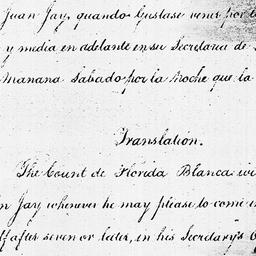 Juan Jay, quando Gustase venir por la
y media en adelante en su Secretaria de
manana Sabado por la Noche que la
Translation.
The Count de Florida Blanca wi
Jay whenever he may please to come
after seven or later, in his Secretary's